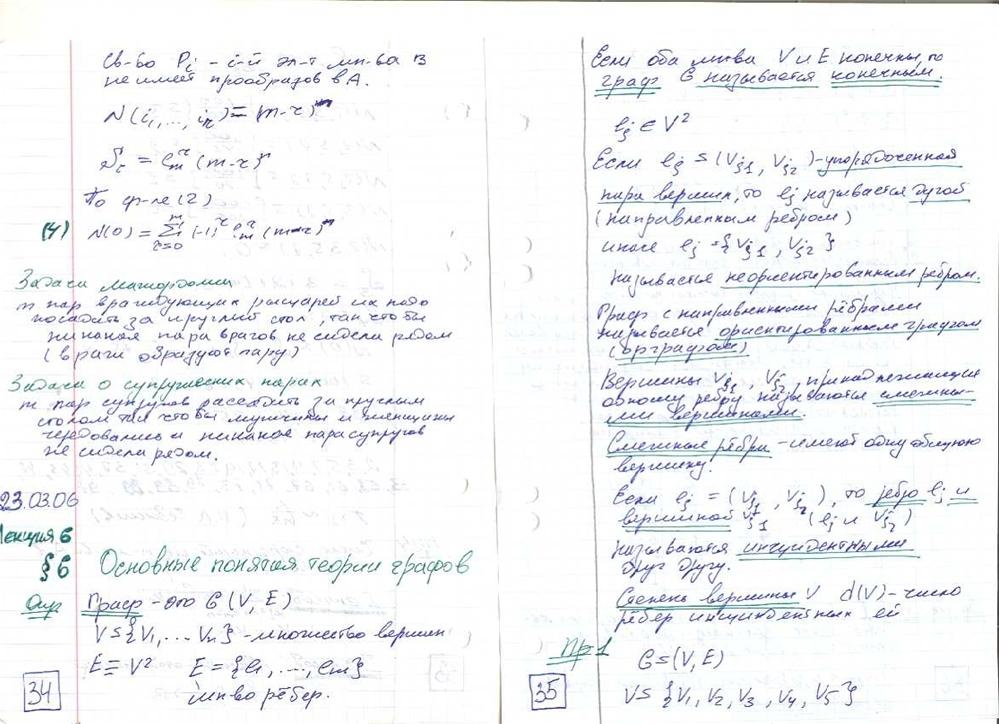 Св-во Pᵢ - i-й эл-т мн-ва B
не имеет прообразов в A.
N(i₁, ..., iᵣ) = (m-r)ⁿ
Sᵣ = Cₘʳ (m-r)ⁿ
По ф-ле (2)
(4) N(0) = Σ (-1)ʳ Cₘʳ (m-r)ⁿ
r=0
Задача мажордома
m пар враждующих рыцарей их надо
посадить за круглый стол, так что бы
никакая пара врагов не сидела рядом
(враги образуют пару)
Задача о супружеских парах
m пар супругов рассадить за круглым
столом так что бы мужчины и женщины
чередовались и никакая пара супругов
не сидела рядом.
23.03.06
Лекция 6
§6 Основные понятия теории графов
Опр Граф - это G(V, E)
V = {V₁, ... Vₙ} - множество вершин
E = V² E = {e₁, ..., eₘ}
мн-во рёбер.
34
Если оба мн-ва V и E конечны, то
граф G называется конечным.
eⱼ ∈ V²
Если eⱼ = (Vⱼ₁, Vⱼ₂) - упорядоченная
пара вершин, то eⱼ называется дугой
(направленным ребром)
иначе eⱼ = {Vⱼ₁, Vⱼ₂}
называется неориентированным ребром.
Граф с направленными рёбрами
называется ориентированным графом
(орграфом)
Вершины Vⱼ₁, Vⱼ₂, принадлежащие
одному ребру называются смежны-
ми вершинами.
Смежные рёбра - имеют одну общую
вершину.
Если eⱼ = (Vⱼ₁, Vⱼ₂), то ребро eⱼ и
вершиной Vⱼ₁ (eⱼ и Vⱼ₂)
называются инцидентными
друг другу.
Степень вершины V d(V) - число
рёбер инцидентных ей
Пр 1
G = (V, E)
V = {V₁, V₂, V₃, V₄, V₅}
35